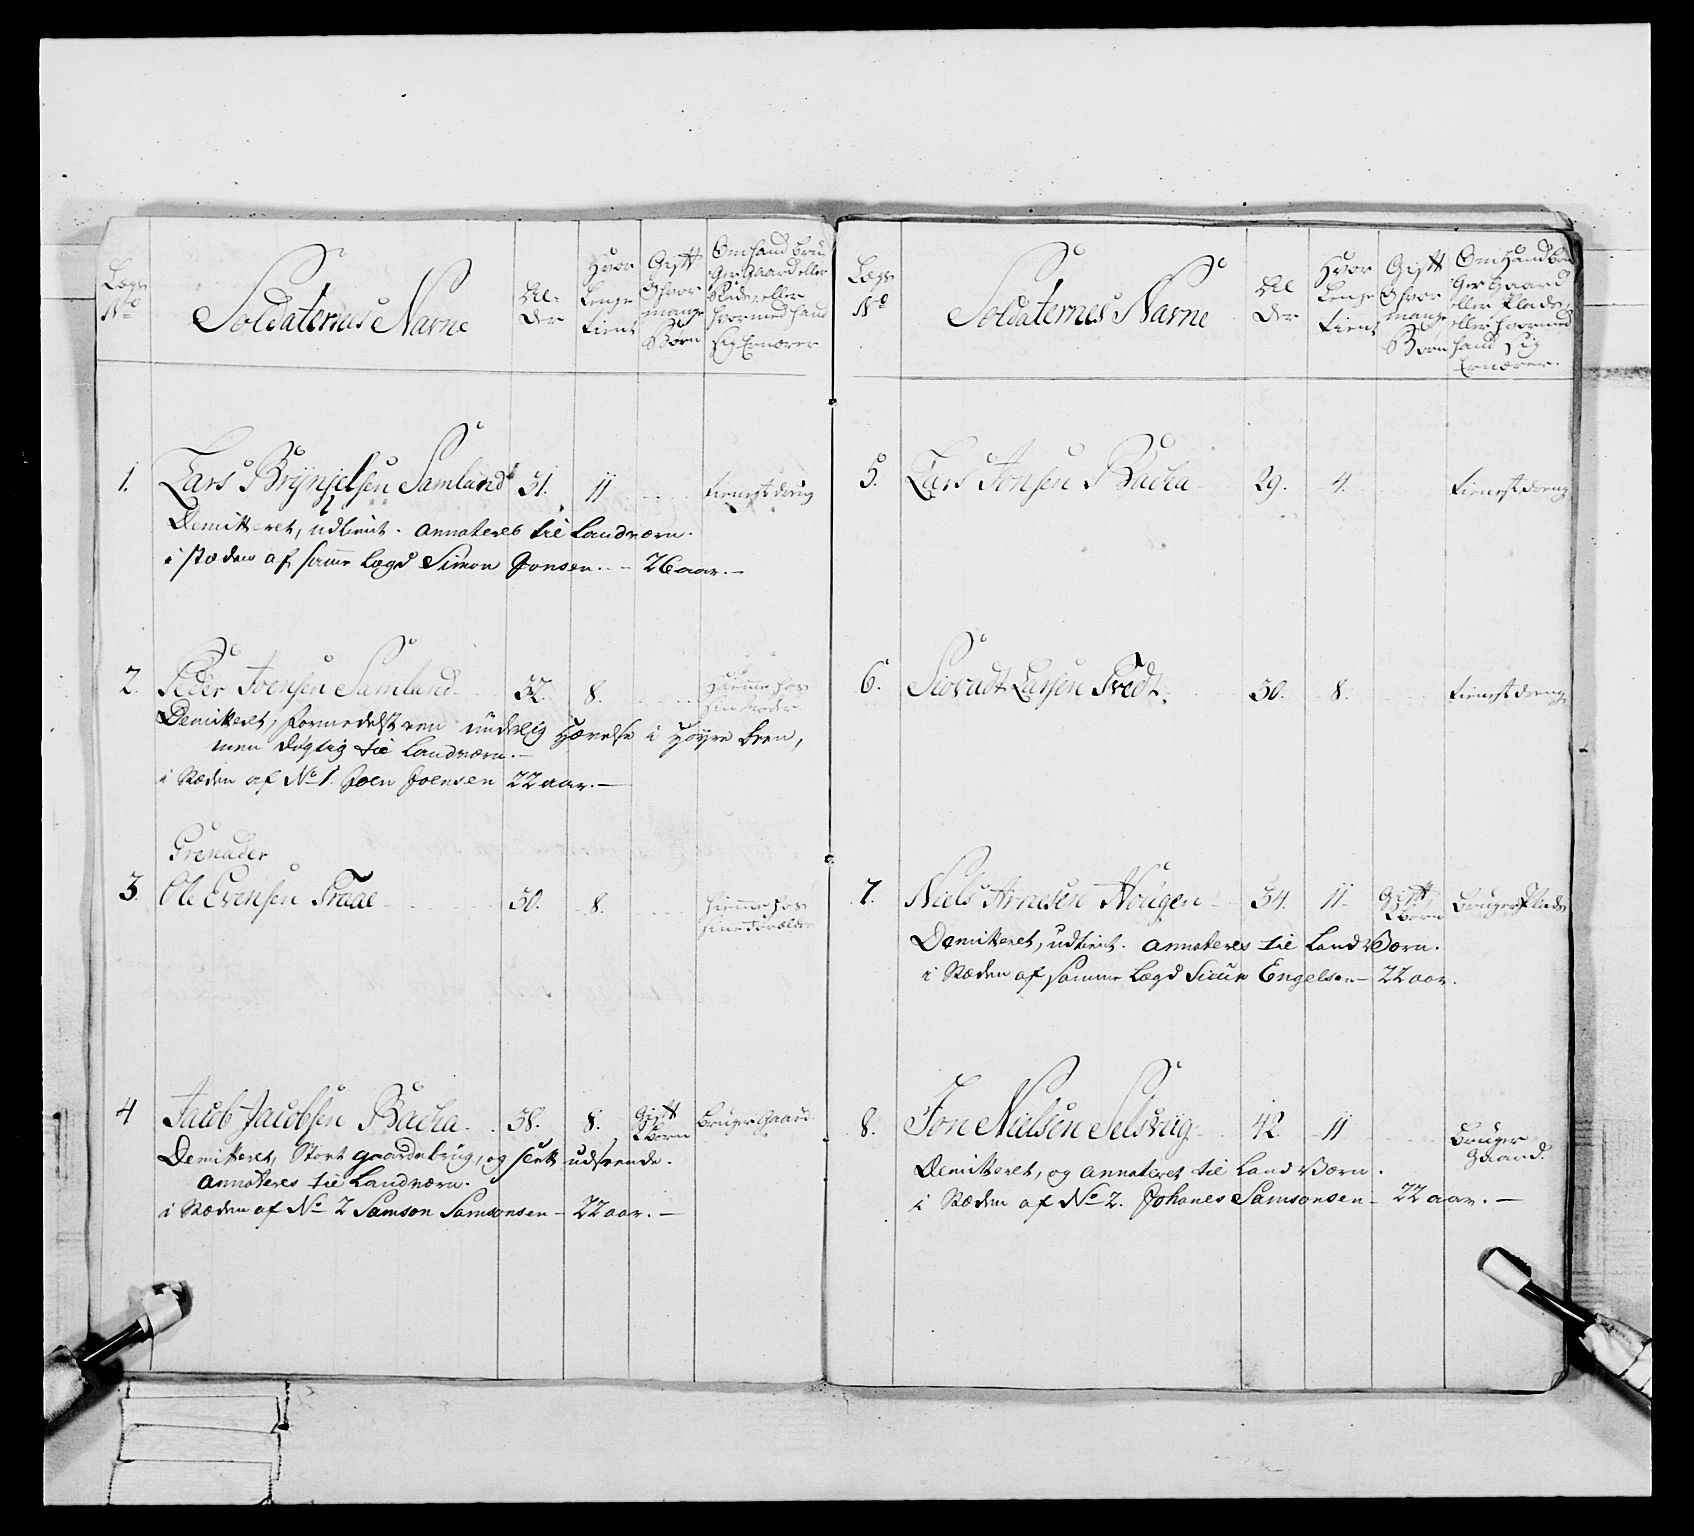 Lægs No
Soldaternes Navne
Al-
der
Hvor
Lenge
tient
Gift
& hvor
mange
Børn
Om hand bru
ger Gaard eller
Plads, eller
hvormed hand
sig Ernærer
1. Lars Brÿnjelsen Samland 31. 11 tienestdreng
Demitteret, udtient. annoteres til Landværn.
i stæden af samme Lægd Simon Jonsen. - 26 aar. -
2. Peder Joensen Samland 32. 8. hiemme hos
sin Moder
Demitteret, formedelst en underlig Hævelse i Høyre Been,
men dygtig til Landværn. -
i Stæden af No 1. Joen Joensen 22 aar. -
Grenader
3. Ole Evensen Traae 30. 8. hiemme hos
sine Forældre
4 Jacob Jacobsen Backa 38. 8. Gift
Børn Bruger Gaard
Demitteret, Stort gaardsbrug, og slett udseende.
annoteres til Landværn.
i Stæden af No 2 Samson Samsonsen - 22 aar. -
Lægs No
Soldaternes Navne
Al
der
Hvor
Lenge
tient
Gift
& hvor
mange
Børn
Om Hand bru
ger Gaard
eller Plads,
eller hvormed
hand sig
Ernærer.
5. Lars Jonsen Backa 29. 4. tienestdreng
6. Siovadt Larsen Tvedt. 30. 8. tienestdreng
7. Niels Arnesen Hougen 34. 11 Gift,
Børn Bruger Plads
Demitteret, udtient. annoteres til Land Værn.
i Stæden af samme Lægd Engelsen - 22 aar.
8. Jon Nielsen Selsviig 42. 11 Bruger
Gaard.
Demitteret, og annoteret til Land Værn.
i Stæden af No 2. Johanes Samsonsen - 22 aar. -